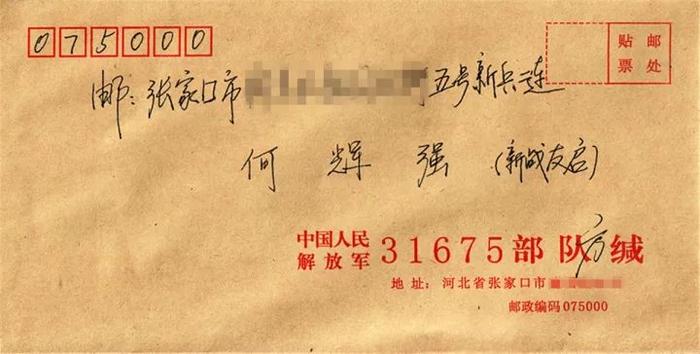 075000
贴邮
票处
邮:张家口市 五号新兵连
何辉强(新战友启)
中国人民解放军 31675部队 方 缄
地址:河北省张家口市
邮政编码075000